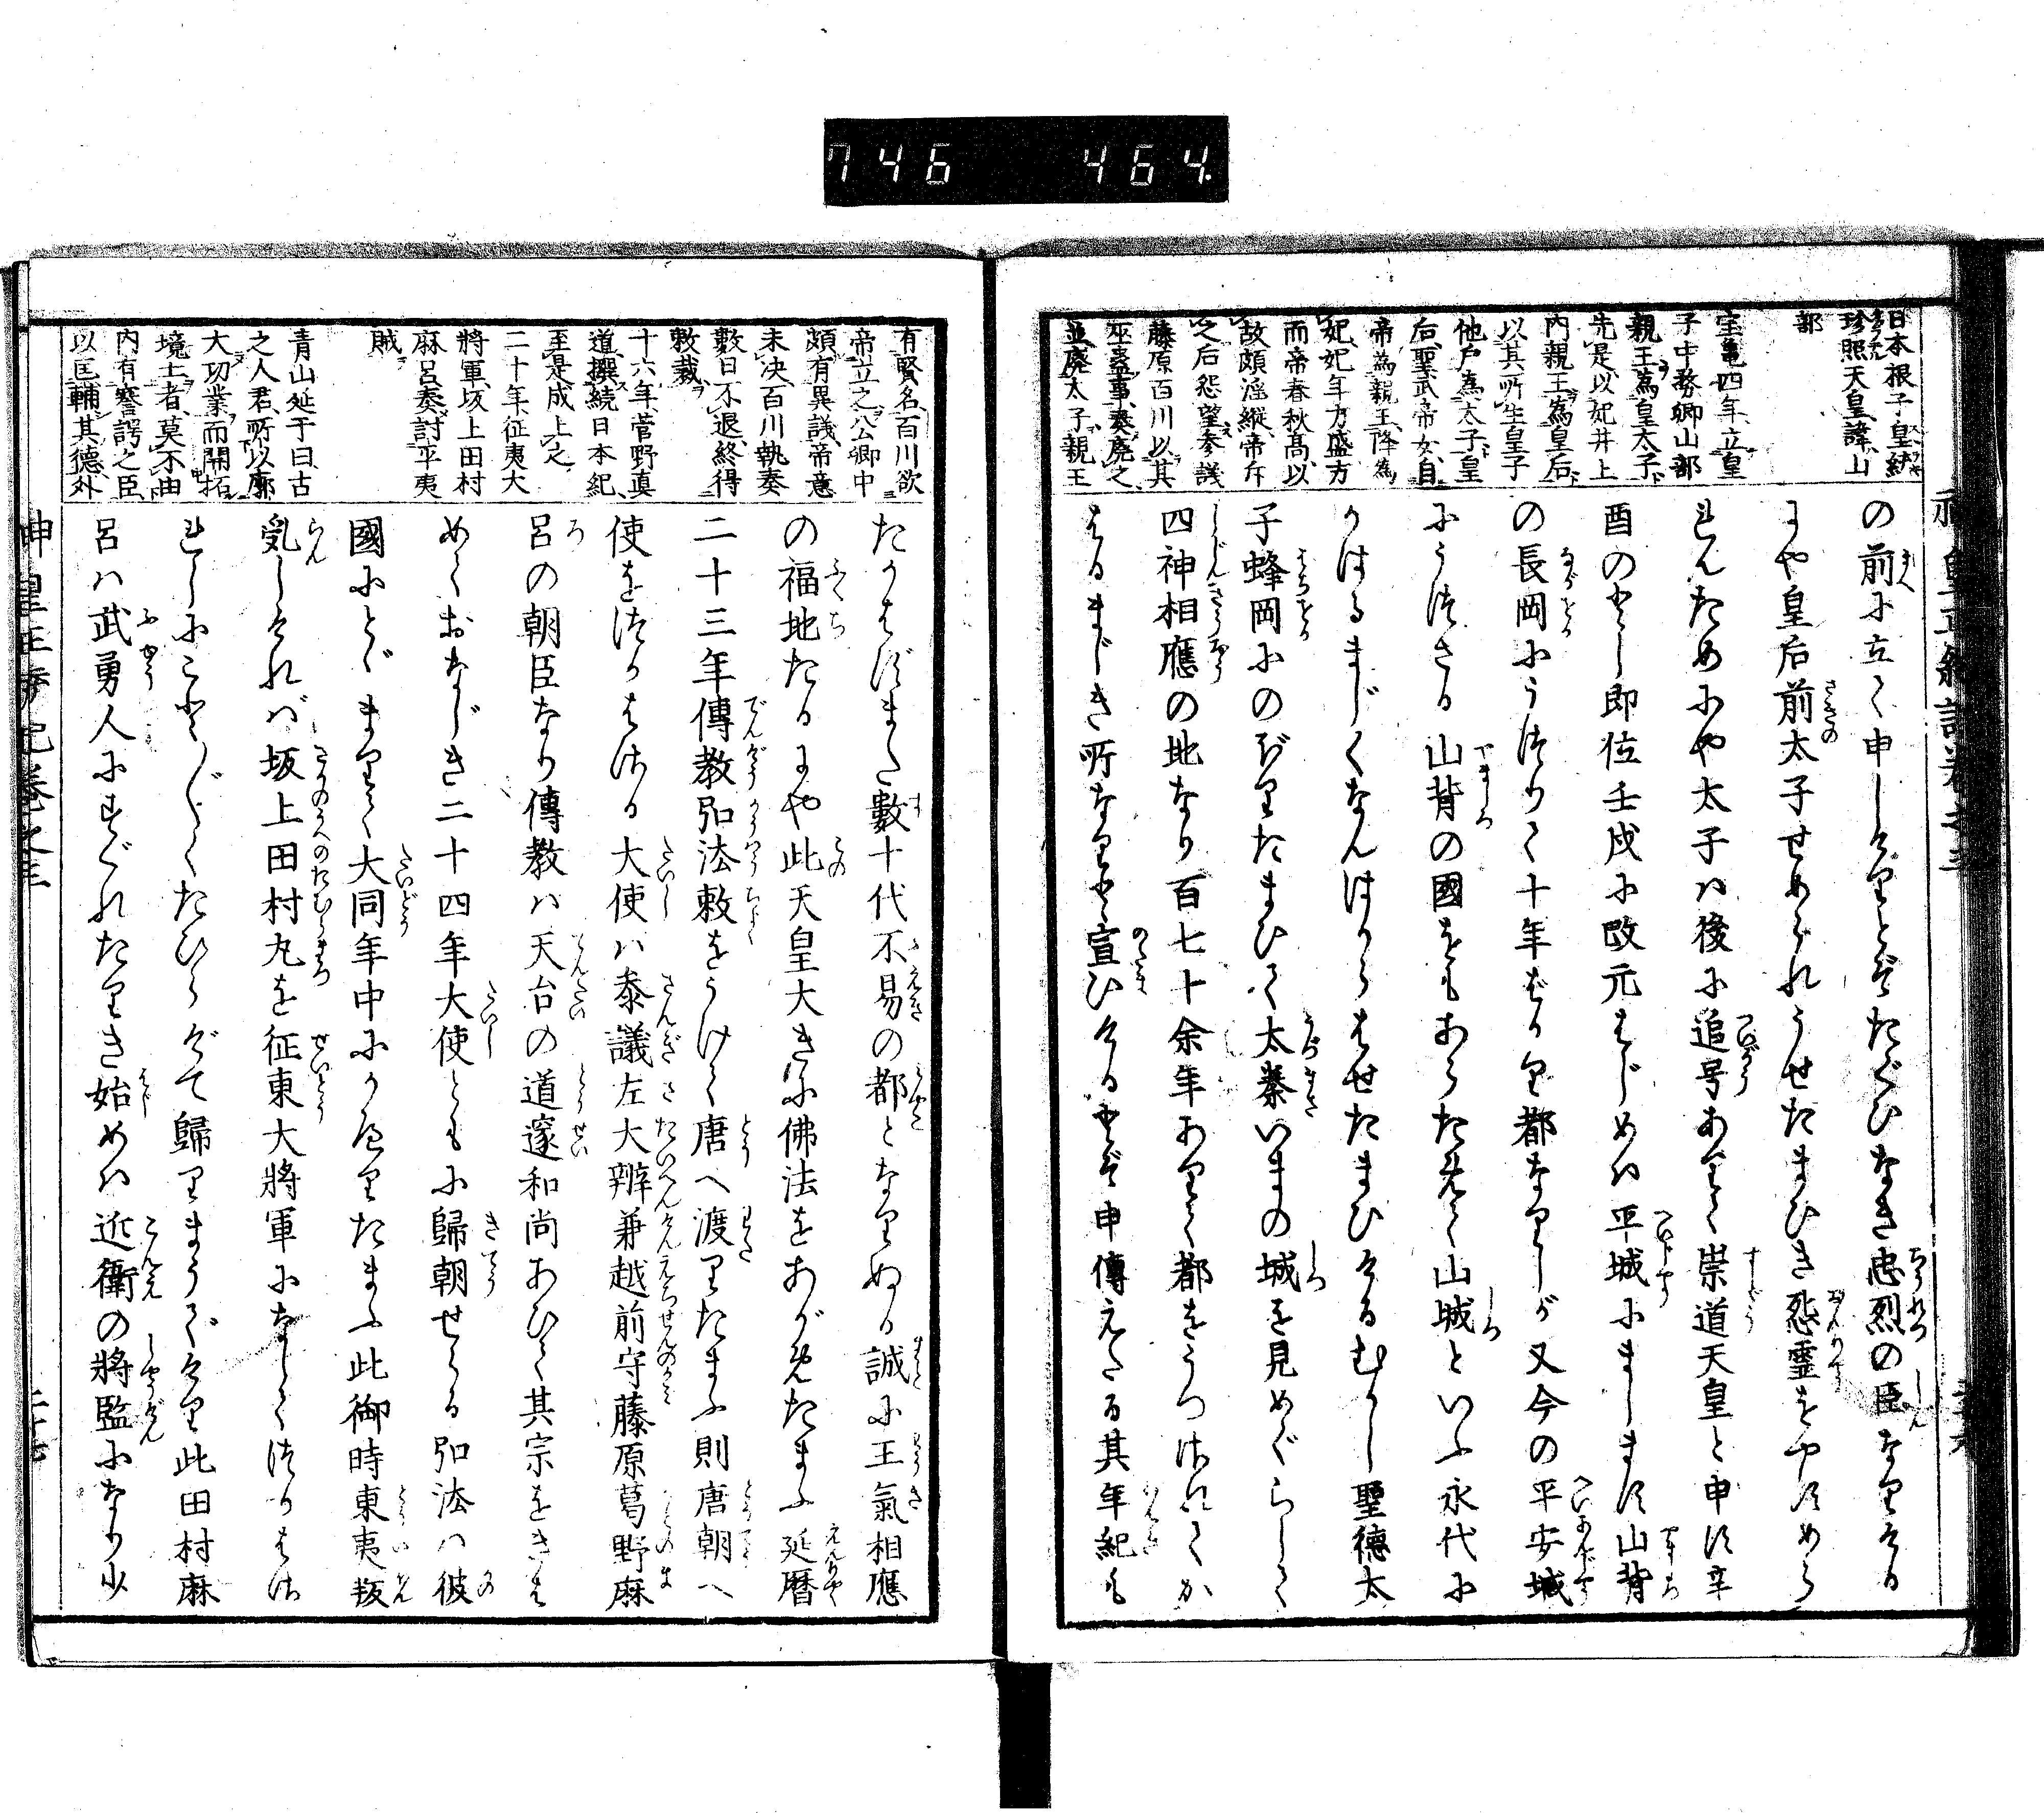 746 464.
日本根子皇統
珍照天皇諱山
部
宝亀四年立皇
子中務卿山部
親王為皇太子
先是以妃井上
内親王為皇后
以其所生皇子
他戸為太子皇
后聖武帝女自
帝為親王降為
妃妃年方盛方
而帝春秋高以
故頗淫縦帝斥
之后怨望参議
藤原百川以其
巫蠱事奏廃之
並廃太子親王
の前に立て申しけるとぞたぐひなき忠烈の臣なりける
にや皇后前太子せめられうせたまひき怨霊をやすめら
れんためにや太子は後に追号ありて崇道天皇と申す辛
酉のとし即位壬戌に改元はじめは平城にまします山背
の長岡にうつりて十年ばかり都なりしが又今の平安城
にうつさる山背の國をもあらためて山城といふ永代に
かはるまじくなんはからはせたまひけるむかし聖徳太
子蜂岡にのぼりたまひて太秦いまの城を見めぐらして
四神相應の地なり百七十余年ありて都をうつされてか
はるまじき所なりと宣ひけるとぞ申傳えたる其年紀も
有賢名百川欲
帝立之公卿中
頗有異議帝意
未決百川執奏
數日不退終得
敕裁
十六年菅野真
道撰続日本紀
至是成上之
二十年征夷大
將軍坂上田村
麻呂奏討平夷
賊
青山延于曰古
之人君所以廓
大功業而開拓
境土者莫不由
内有謇諤之臣
以匡輔其徳外
たかはずまた數十代不易の都となりぬる誠に王氣相應
の福地たるにや此天皇大きに佛法をあがめたまふ延暦
二十三年傳教弘法敕をうけて唐へ渡りたまふ則唐朝へ
使をつかはさる大使は参議左大辨兼越前守藤原葛野麻
呂の朝臣なり傳教は天台の道邃和尚あひて其宗をきは
めておなじき二十四年大使とともに歸朝せらる弘法は彼
國にとゞまりて大同年中にかへりたまふ此御時東夷叛
乱しければ坂上田村丸を征東大將軍になしてつかはさ
れしにことごとくたひらげて歸りまうでけり此田村麻
呂は武勇人にすぐれたりき始めは近衞の將監になり少
神皇正統記巻之三